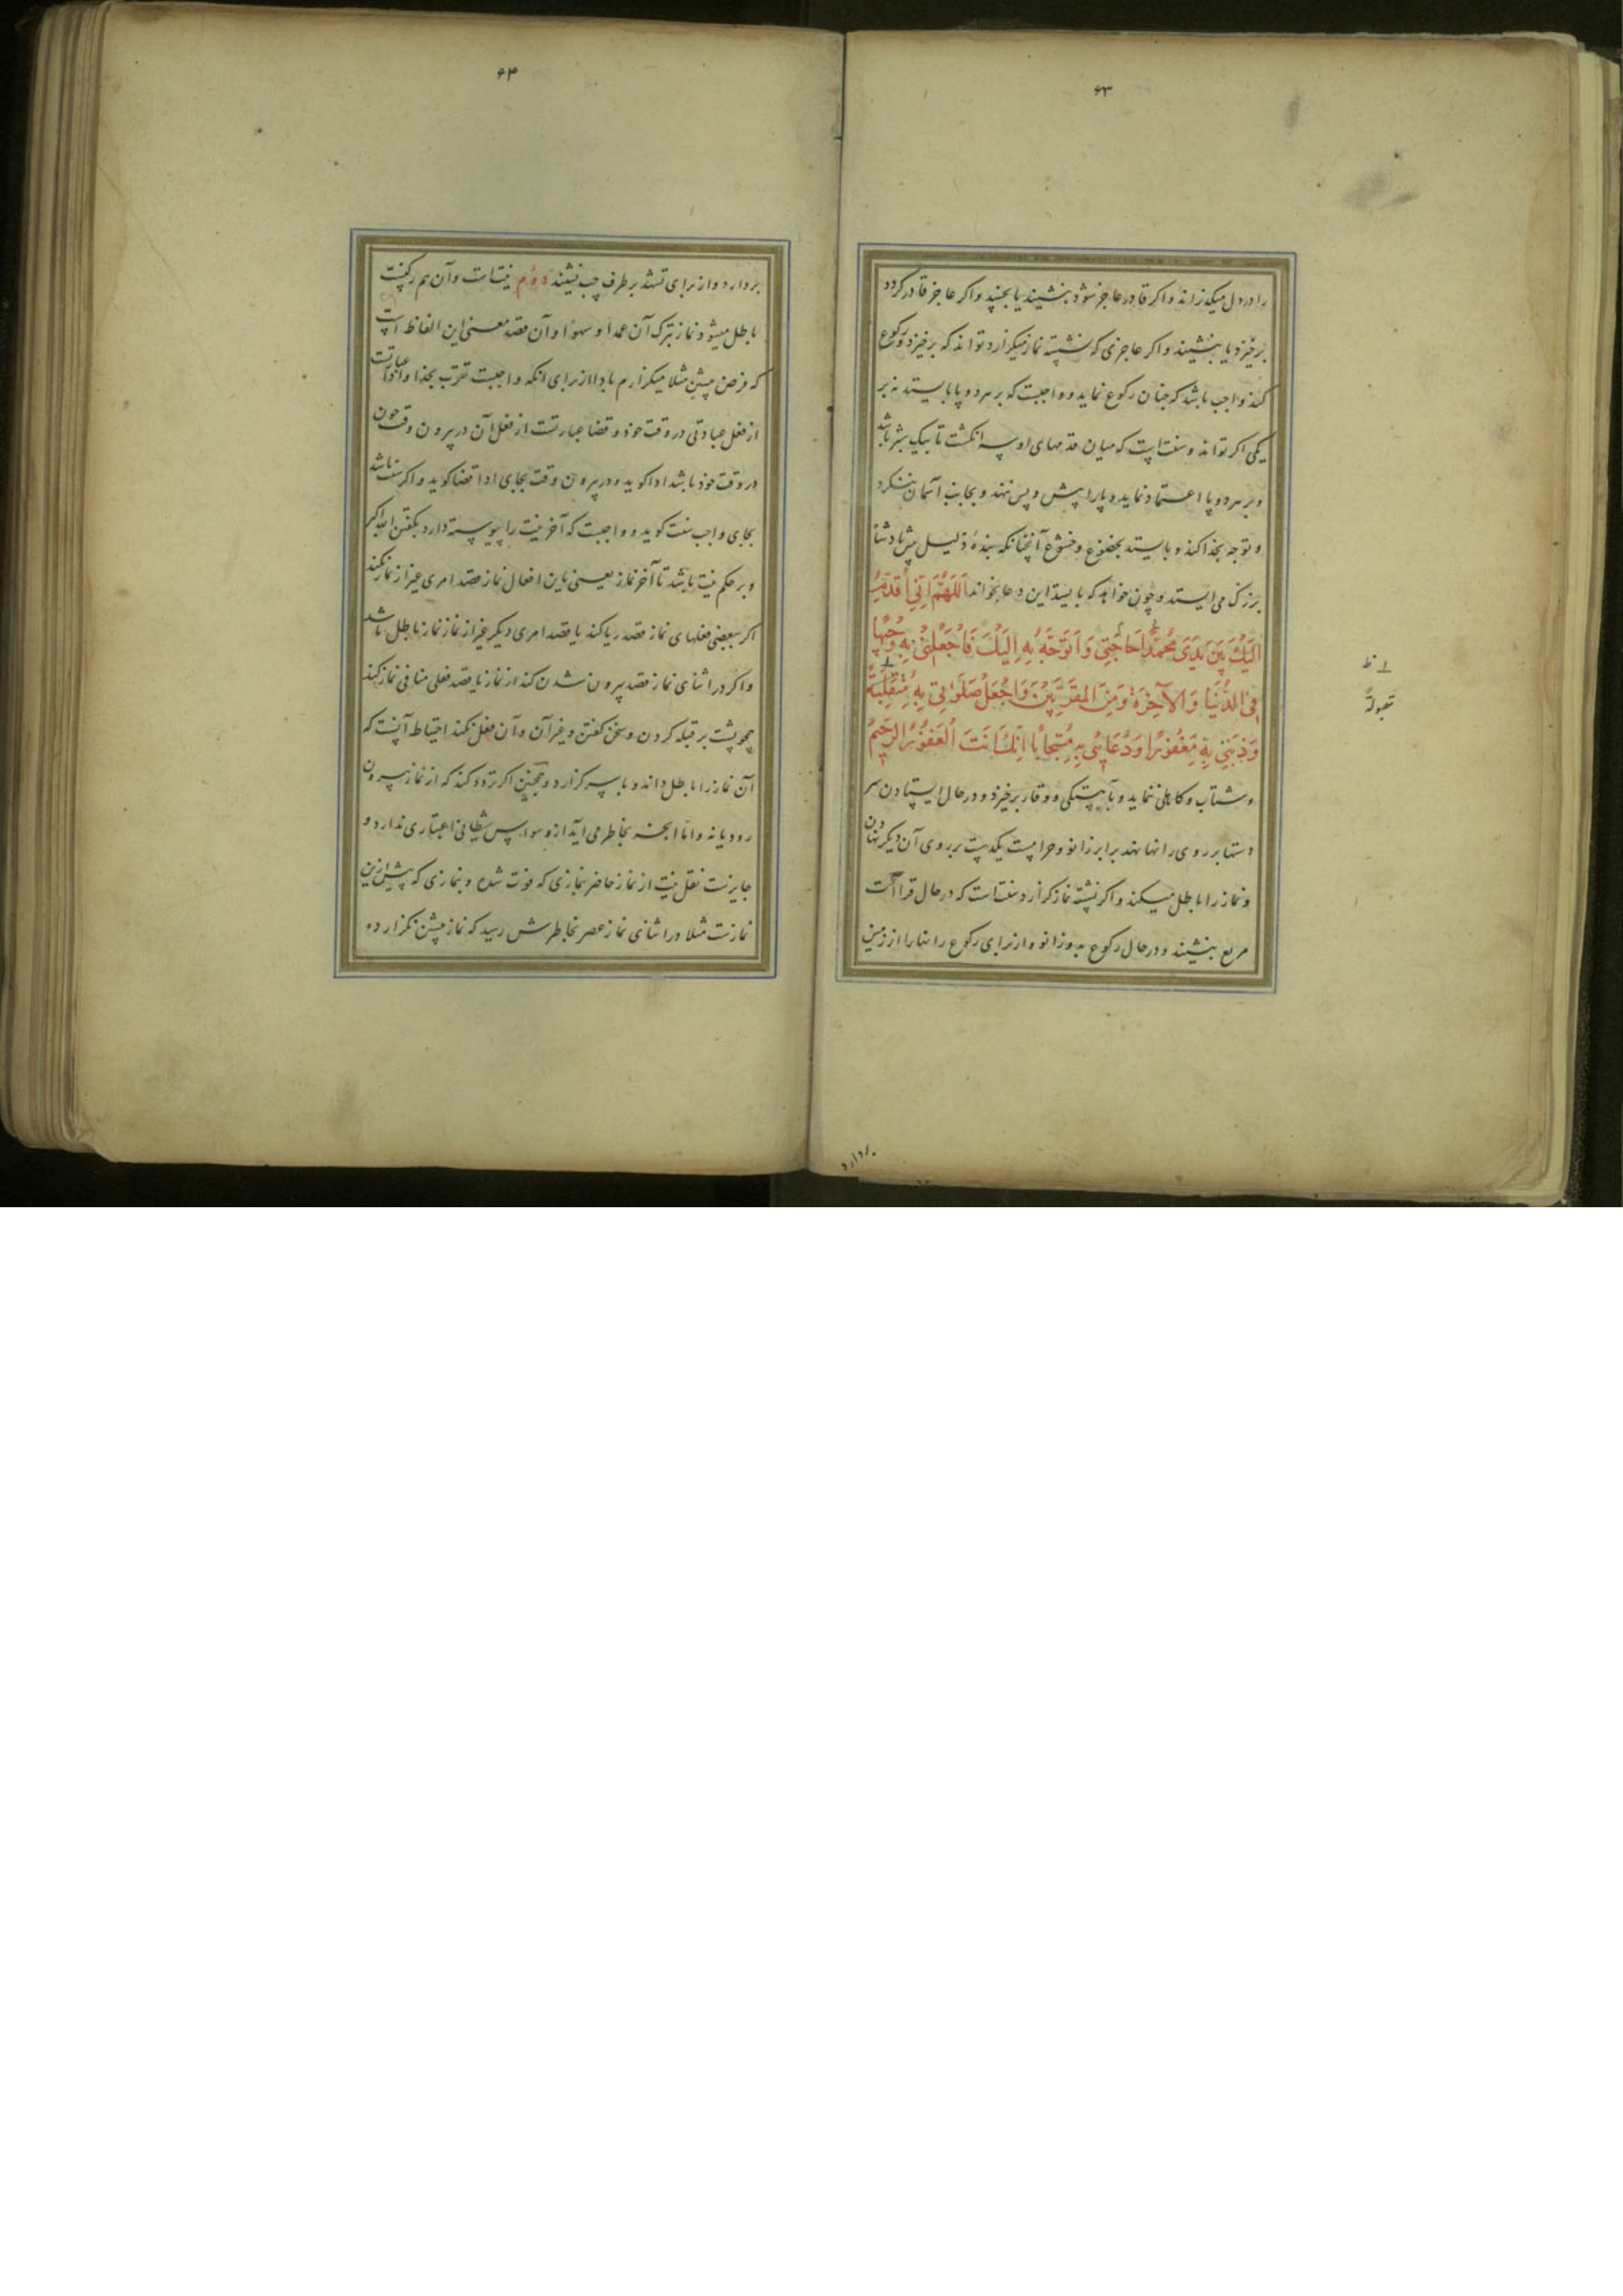 ۶۳
را در دل میگذراند و اکر قادر عاجز شود بنشیند یا بخسپد و اکر عاجز قادر کردد
برخیزد یا بنشیند و اکر عاجزی که نشسته نماز میگزارد تواند که برخیزد و رکوع
کند واجب باشد که چنان رکوع نماید و واجبست که بر هر دو پا بایستد نه بر
یکی اکر تواند و سنت است که میان قدمهای او سه انکشت تا بیک شبر باشد
و بر هر دو پا اعتماد نماید و پا را پیش و پس ننهد و بجانب آسمان ننکرد
و توجه بخدا کند و بایستد بخضوع و خشوع آنچنانکه بندهٔ ذلیل پیش پادشاه
بزرک می ایستد و چون خواهد که بایستد این دعا بخواند اَللّهُمَّ اِنّی اُقَدِّمُ
اِلَیْكَ بَیْنَ یَدَیْ مُحَمَّدًا حاجَتی وَ اَتَوَجَّهُ بِهِ اِلَیْكَ فَاجْعَلْنی بِهِ وَجیهًا
فِی الدُّنْیا وَ الآخِرَةِ وَ مِنَ المُقَرَّبینَ وَ اجْعَلْ صَلَوتی بِهِ مُتَقَبَّلَةً
وَ ذَنْبی بِهِ مَغْفُورًا وَ دُعائی بِهِ مُسْتَجابًا اِنَّكَ اَنْتَ الْغَفُورُ الرَّحیمُ
و شتاب و کاهلی ننماید و بآهستکی و وقار برخیزد و در حال ایستادن سر
دستها بر روی رانها نهد برابر زانو و حرامست یکدست بر روی آن دیکر نهادن
و نماز را باطل میکند و اکر نشسته نماز کزارد سنت است که در حال قراات
مربع بنشیند و در حال رکوع بدو زانو و از برای رکوع رانها را از زمین
مقبولةً
بردارد
۶۴
بردارد و از برای تشهد بر طرف چپ نشیند دوم نیت است و آن هم رکنست
باطل میشود نماز بترک آن عمدا و سهوا و آن قصد معنی این الفاظ است
که فرض پیشین مثلا میگزارم بادا از برای انکه واجبست تقرب بخدا و ادا عبارتست
از فعل عبادتی در وقت خود و قضا عبارتست از فعل آن در بیرون وقت چون
در وقت خود باشد ادا کوید و در بیرون وقت بجای ادا قضا کوید و اکر سنت باشد
بجای واجب سنت کوید و واجبست که آخر نیت را پیوسته دارد بکفتن الله اکبر
و بر حکم نیت باشد تا آخر نماز یعنی باین افعال نماز قصد امری غیر از نماز نکند
اکر ببعضی فعلهای نماز قصد ریا کند یا قصد امری دیکر غیر از نماز نماز باطل باشد
و اکر در اثنای نماز قصد بیرون شدن کند از نماز یا قصد فعلی منافی نماز کند
چو پشت بر قبله کردن و سخن کفتن و غیر آن و آن فعل نکند احتیاط آنست که
آن نماز را باطل داند و باسر گزارد و همچنین اکر تردد کند که از نماز بیرون
رود یا نه و اما انچه بخاطر می آید از وسواس شیطانی اعتباری ندارد و
جایزست نقل نیت از نماز حاضر بنمازی که فوت شده و بنمازی که پیش ازین
نمازست مثلا در اثنای نماز عصر بخاطرش رسید که نماز پیشین نکزارده